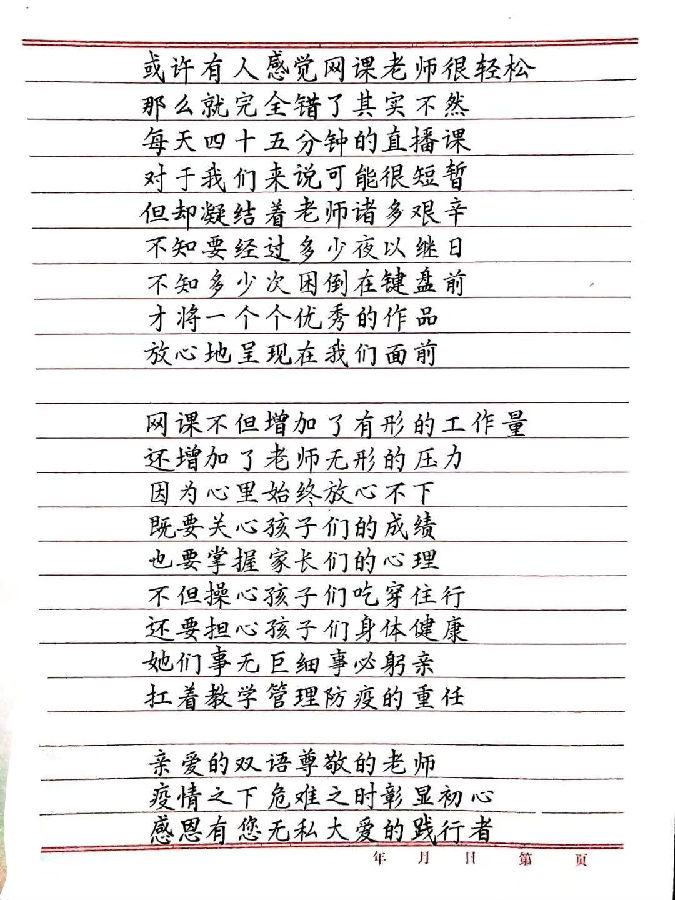 或许有人感觉网课老师很轻松
那么就完全错了其实不然
每天四十五分钟的直播课
对于我们来说可能很短暂
但却凝结着老师诸多艰辛
不知要经过多少夜以继日
不知多少次困倒在键盘前
才将一个个优秀的作品
放心地呈现在我们面前
网课不但增加了有形的工作量
还增加了老师无形的压力
因为心里始终放心不下
既要关心孩子们的成绩
也要掌握家长们的心理
不但操心孩子们吃穿住行
还要担心孩子们身体健康
她们事无巨细事必躬亲
扛着教学管理防疫的重任
亲爱的双语尊敬的老师
疫情之下危难之时彰显初心
感恩有您无私大爱的践行者
年 月 日 第 页